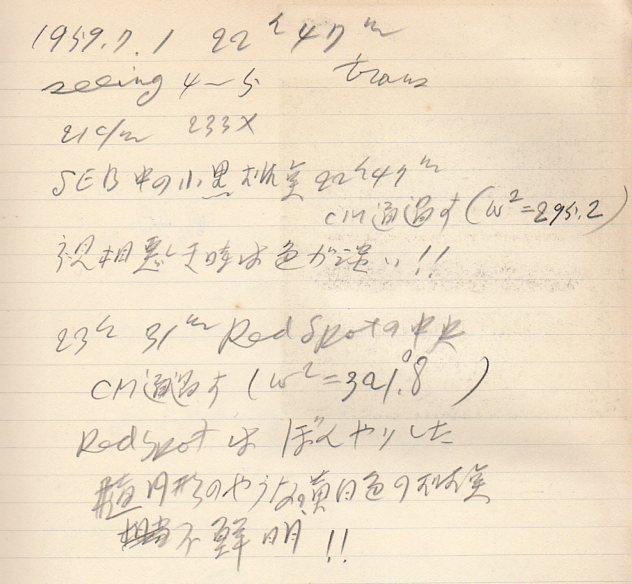 1959.7.1 22h47m
seeing 4~5 trans
21c/m 233X
SEB中の小黒 22h47m
CM通過す(ω²=295.2)
視相悪しき時は色が濃い!!
23h 31m Red Spotの中央
CM通過す (ω²=321°.8 )
RedSpotはぼんやりした
円形のやうな黄白色の
不鮮明!!